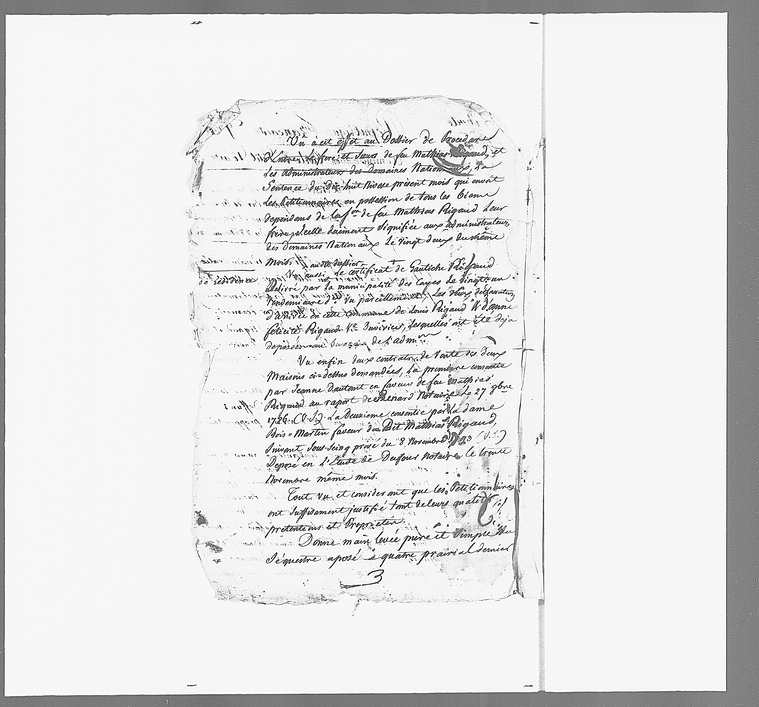 Vu a cet effet au Dossier de Procedure
d'Entre les frere et Sœurs de feu Mathias Rigaud, et
Les Administrateurs des Domaines Nationaux, La
Sentence du Dix huit Nivose présent mois qui envoit
Les Petitionnaires en possession de tous les biens
dépendans de la son de feu Mathias Rigaud Leur
frère, icelle duement signifiée aux administrateurs
des Domaines Nationaux le vingt deux du même
mois
Vu aussi Le certificat de
de résidence
Délivré par la municipalité des Cayes le vingt un
Vendemiaire dr. Vu pareillement Les
d'arrivée en cette Commune de Louis Rigaud et d'anne
félicité Rigaud Ve. lesquelles ont été déja
déposées au bureau de l'admon
Vu enfin deux contrats de Vente des deux
Maisons ci-dessus demandées, La premiere consentie
par Jeanne en faveur de feu Mathias
Rigaud au raport de Notaire Le 27 9bre
(V.S.) La Deuxieme consentie par la dame
Bois-Martin faveur du Dit Mathias Rigaud,
Suivant sous-seing privé du 8 Novembre (V.S.)
Déposé en l'Etude de Dufour Notaire le trente
Novembre même mois.
Tout vu et considerant que les Petitionnaires
ont suffisement justifié tant de leurs qualités
prétenteur et Proprietée
Donne main levée pure et simple du
Séquestre aposé le quatre prairial dernier
3